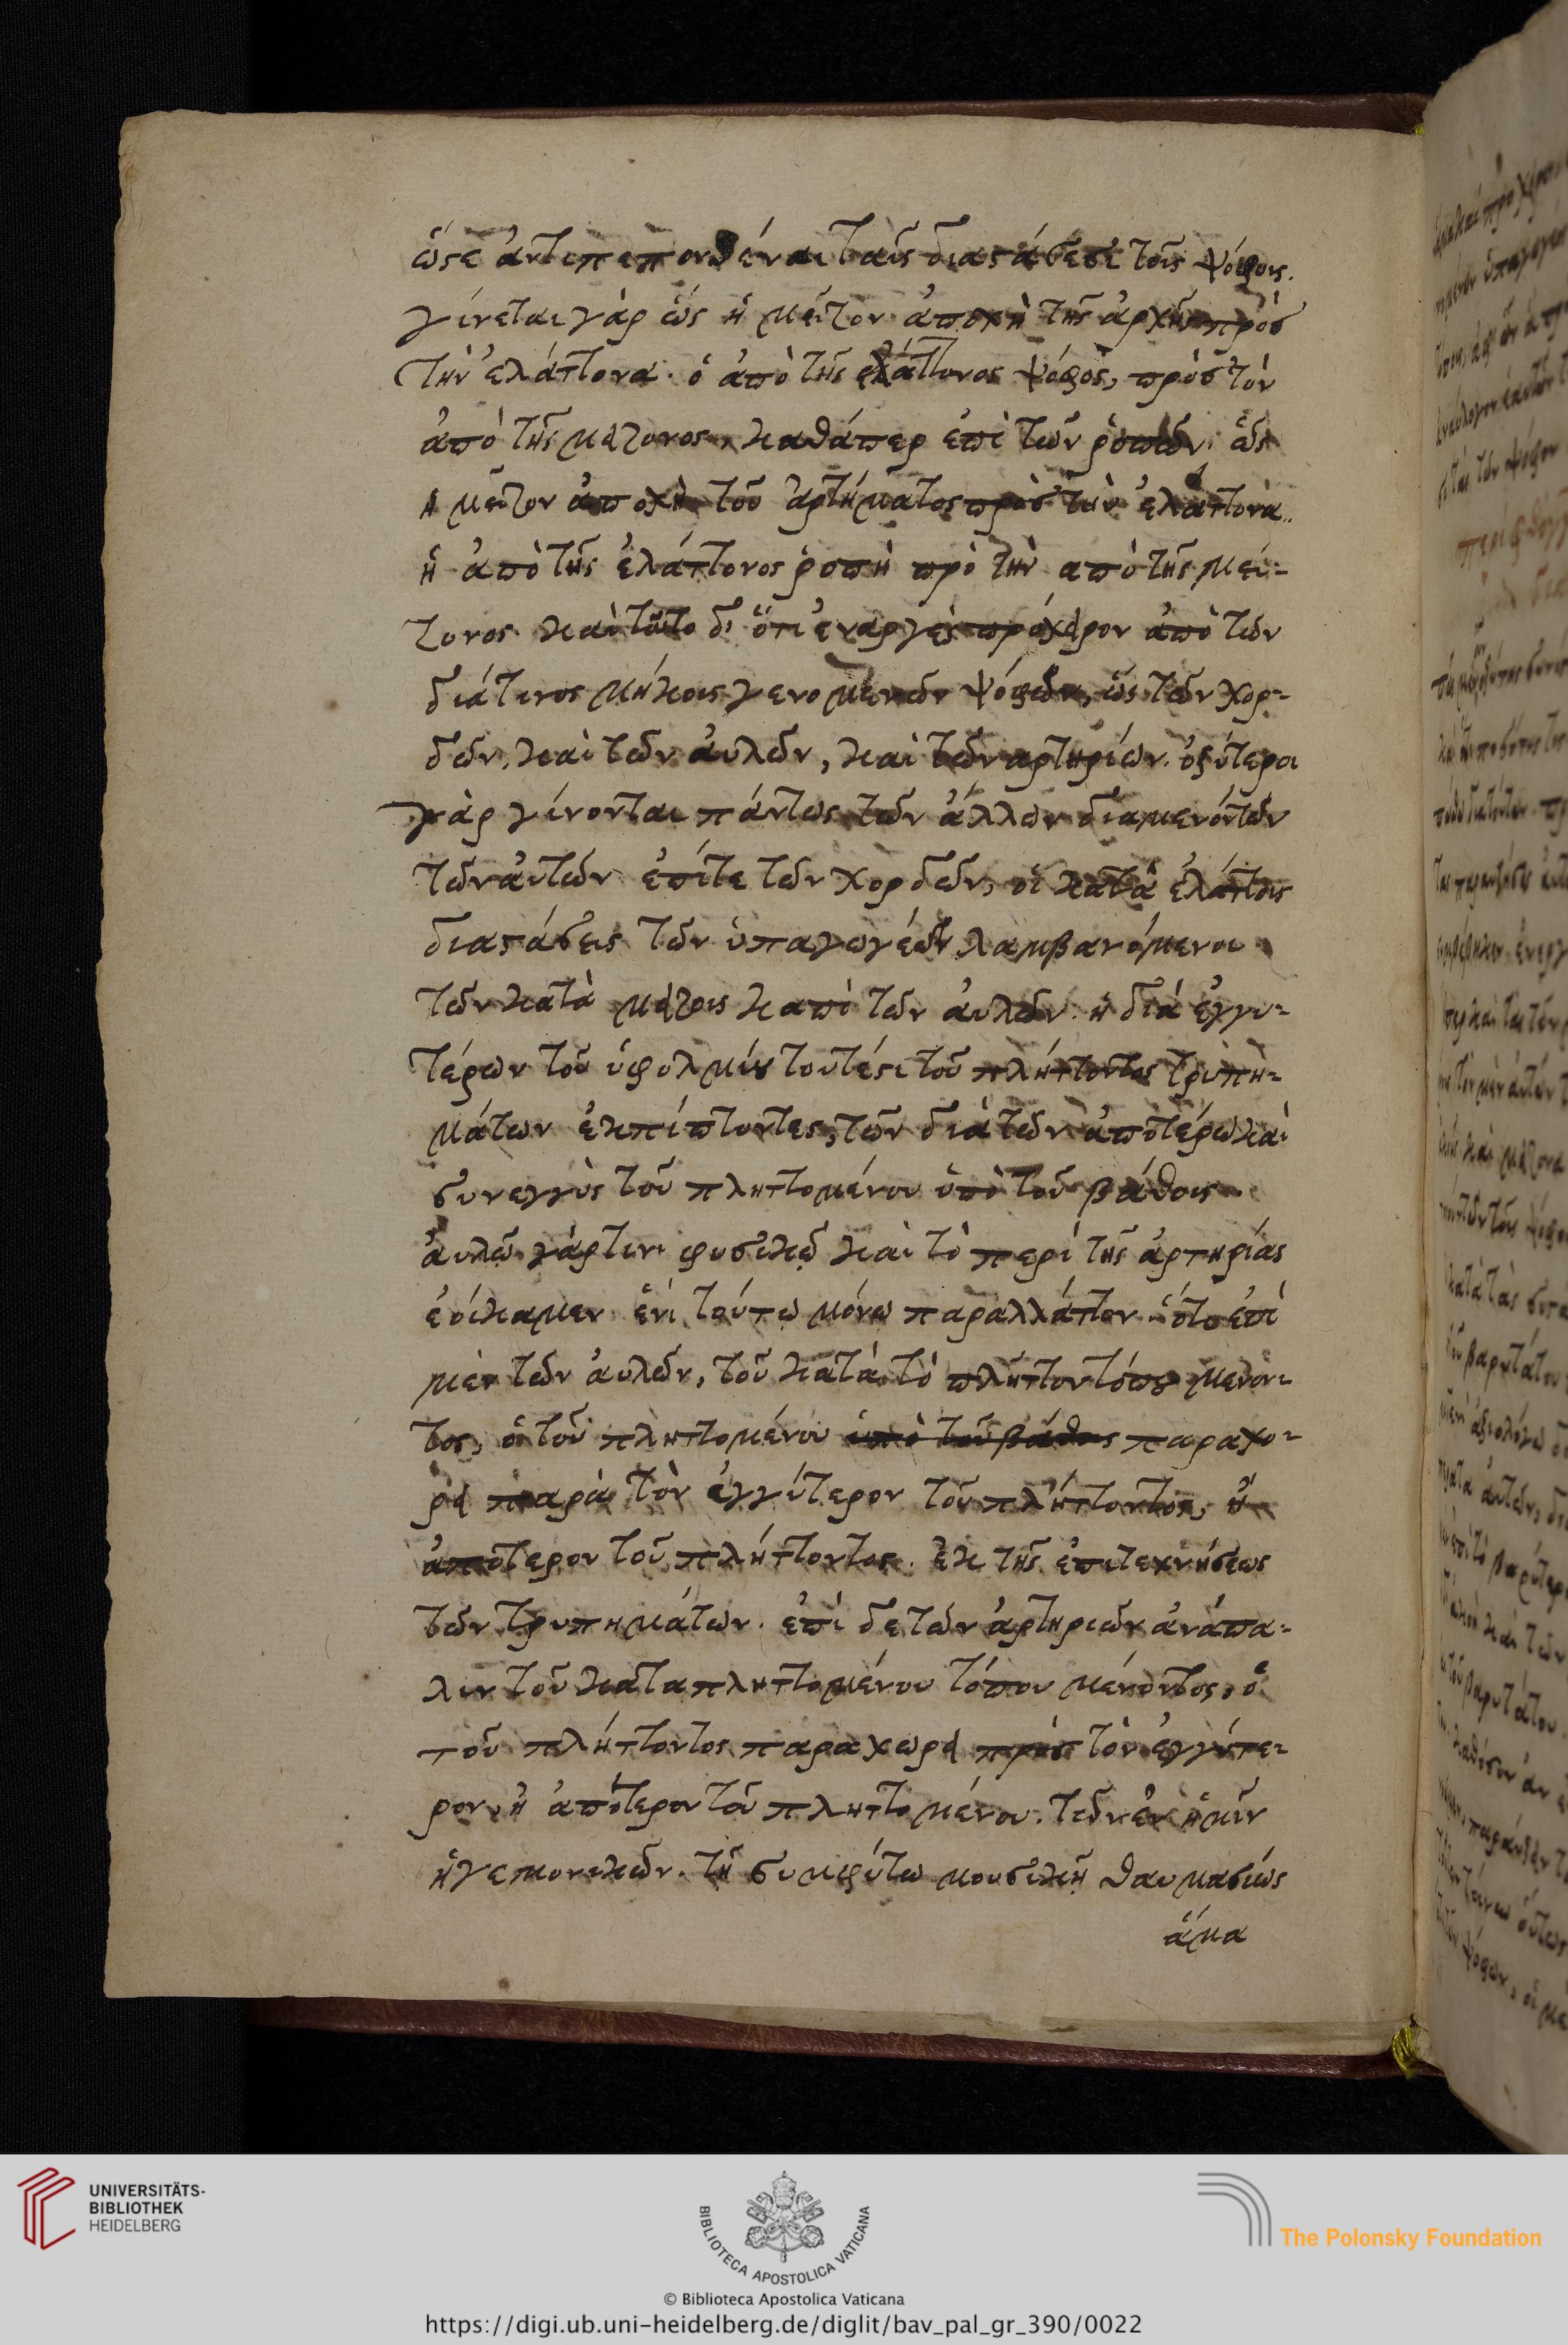 ὥστε ἀντιπεπονθέναι ταῖς διαστάσεσι τοῖς ψόφοις.
γίνεται γὰρ ὡς ἡ μεῖζον ἀποχὴ τῆς ἀρχῆς πρὸς
τὴν ἐλάττονα· ὁ ἀπὸ τῆς ἐλάττονος ψόφος, πρὸς τὸν
ἀπὸ τῆς μείζονος, καθάπερ ἐπὶ τῶν ῥοπῶν· ὡς
ἡ μεῖζον ἀποχὴ τοῦ ἀρτήματος πρὸς τὴν ἐλάττονα..
ἡ ἀπὸ τῆς ἐλάττονος ῥοπὴ πρὸ τὴν ἀπὸ τῆς μεί-
ζονος καὶ τοῦτο δ' ὅτι ἐναργὲς πρόχειρον ἀπὸ τῶν
διά τινος μήκους γενομένων ψόφων, ὡς τῶν χορ-
δῶν, καὶ τῶν ἀυλῶν, καὶ τῶν αρτηρίων. ὀξύτεροι
γὰρ γίνονται πάντως τῶν ἄλλων διαμενόντων
τῶν ἀυτῶν ἐπί τε τῶν χορδῶν, οἱ κατὰ ἐλάττοις
διαστάσεις τῶν ὑπαγωγέων λαμβανόμενοι
τῶν κατὰ μείζοις καπὶ τῶν ἀυλῶν. ἡ διὰ ἐγγυ-
τέρων τοῦ ὑφολμίου τουτέστι τοῦ πλήττοντος τρυπη-
μάτων ἐκπίπτοντες, τῶν διὰ τῶν ἀποτέρω καὶ
συνεγγὺς τοῦ πληττομένου ὑπὸ τοῦ βάθους
ἀυλῷ γάρ τινι φυσικῷ καὶ τὸ περὶ τῆς ἀρτηρίας
ἐοίκαμεν ἑνὶ τούτῳ μόνῳ παραλλάττον. ὅτο ἐπὶ
μὲν τῶν ἀυλῶν, τοῦ κατὰ τὸ πλῆττον τόπου μένον-
τος, ὁ τοῦ πληττομένου ὑπὸ τοῦ βάθους παραχο-
ρεῖ παρὰ τὸν ἐγγύτερον τοῦ πλήττοντος, ἢ
ἀπότερον τοῦ πλήττοντος. ἐκ τῆς ἐπιτεχνήσεως
τῶν τρυπημάτων. ἐπὶ δὲ τῶν ἀρτηριῶν ἀνάπα-
λιν τοῦ κατα πληττομένου τόπου μένοντος, ὁ
τοῦ πλήττοντος παραχωρεῖ πρὸς τὸν ἐγγύτε-
ρον, ἢ ἀπότερον τοῦ πληττομένου. τῶν ἐν ἡμῖν
ἡγεμονικῶν. τῇ συμφύτω μουσικῇ θαυμασίως
ἅμα
UNIVERSITÄTS-
BIBLIOTHEK
HEIDELBERG
BIBLIOTECA APOSTOLICA VATICANA
The Polonsky Foundation
© Biblioteca Apostolica Vaticana
https://digi.ub.uni-heidelberg.de/diglit/bav_pal_gr_390/0022